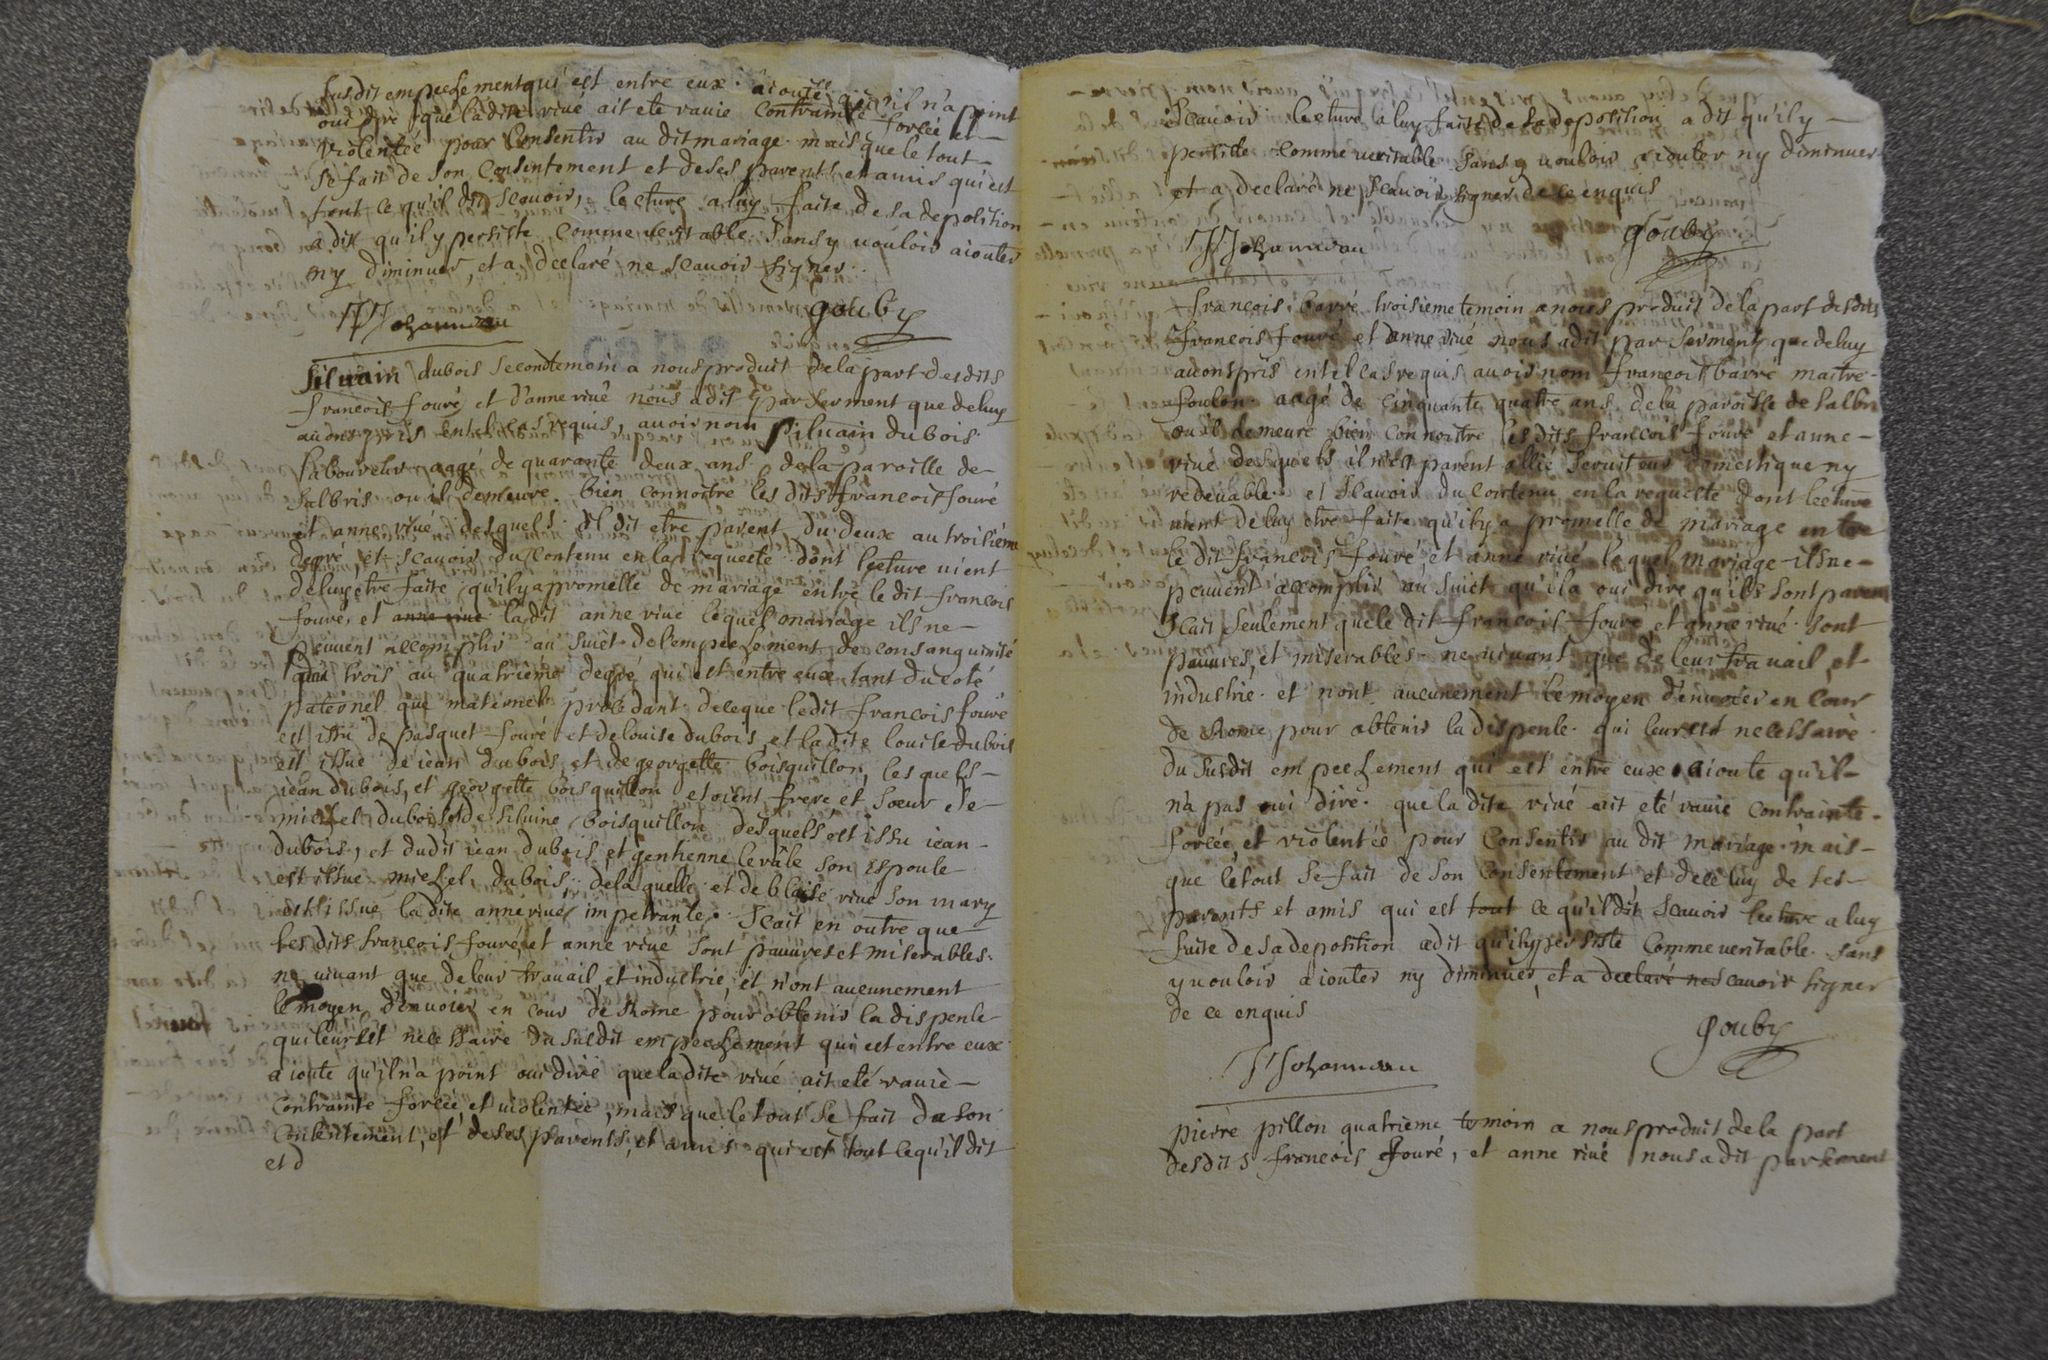 susdit empeschement qui est entre eux. aioute qu'il n'a point
oui dire que la dite riué ait ete rauie contrainte forcée et
violentée pour consentir au dit mariage. mais que le tout
se fait de son consentement et de ses parents et amis qui est
tout ce qu'il dit scauoir, lecture a luy faite de sa deposition
a dit qu'il y persiste comme veritable sans y vouloir aiouter
ny diminuer, et a declaré ne scauoir signer.
Johanneau
gouby
Siluain dubois second temoin a nous produit de la part desdits
francois fouré et d'anne riué nous a dit par serment que de luy
auons pris en tel cas requis, auoir nom siluain dubois.
laboureur aagé de quarante deux ans de la paroisse de
salbris ou il demeure. bien connoitre les dits francois fouré
et anne riué desquels il dit etre parent du deux au troisieme
degré et scauoir du contenu en la requete dont lecture uient
de luy etre faite, qu'il y a promesse de mariage entre le dit francois
fouré, et anne riué ladit anne riué lequel mariage ils ne
peuuent accomplir au suiet de l'empechement de consanguinité
du trois au quatrieme degré qui est entre eux tant du coté
paternel que maternel procedant de ce que ledit francois fouré
est issu de pasquet fouré et de louise dubois et ladite louise dubois
est issue de iean dubois et de georgette boisquillon, lesquels
iean dubois, et georgette boisquillon etoient frere et soeur de
michel dubois et de siluine boisquillon desquels est issu iean
dubois, et dudit iean dubois et gentienne levâle son espouse
est issue michel dubois. de laquelle et de blaise riué son mary
est issue la dite anne riué impetrante. scait en outre que
les dits francois fouré, et anne riué sont pauures et miserables.
ne uiuant que de leur trauail, et industrie, et n'ont aucunement
le moyen d'enuoier en cour de Rome pour obtenir la dispense
qui leur est necessaire du susdit empeschement qui est entre eux
aioute qu'il n'a point oui dire que la dite riué ait eté rauie
contrainte forcée, et uiolentée, mais que le tout se fait de son
consentement, et de ses parents, et amis qui est tout ce qu'il dit
et d
scauoir lecture a luy faite de sa deposition a dit qu'il y
persiste comme ueritable sans y uouloir aiouter ny diminuer
et a declaré ne scauoir signer de ce enquis
Johanneau
gouby
francois barré troisieme temoin a nous produit de la part desdits
francois fouré et anne riué nous a dit par serment que de luy
auons pris en tel cas requis auoir nom francois barré maitre
foulon. aagé de cinquante quatre ans de la paroisse de salbris
ou il demeure bien connoitre les dits francois fouré et anne
riué desquels il n'est parent allié seruiteur domestique ny
redeuable. et scauoir du contenu en la requeste dont lecture
uient de luy etre faite qu'il y a promesse de mariage entre
le dit francois fouré et anne riué lequel mariage ils ne
peuuent accomplir au suiet qu'il a oui dire qu'ils sont parens
scait seulement que le dit francois fouré et anne riué sont
pauures, et miserables ne uiuant que de leur trauail, et
industrie. et n'ont aucunement le moyen d'enuoier en cour
de Rome pour obtenir la dispense. qui leur est necessaire.
du susdit empeschement qui est entre eux aioute qu'il
n'a pas oui dire. que la dite riué ait eté rauie contrainte.
forcée, et violentée pour consentir au dit mariage. mais
que le tout se fait de son consentement et de celuy de ses
parents et amis qui est tout ce qu'il dit scauoir lecture a luy
faite de sa deposition a dit qu'il y persiste comme ueritable. sans
y uouloir aiouter ny diminuer, et a declaré ne scauoir signer
de ce enquis
gouby
Johanneau
pierre pillon quatrieme temoin a nous produit de la part
desdits francois fouré, et anne riué nous a dit par serment